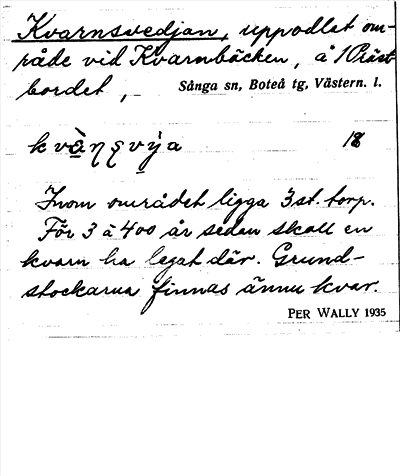 Kvarnsvedjan, uppodlat om-
råde vid Kvarnbäcken, å 1 Präst-
bordet,
Sånga sn, Boteå tg, Västern. l.
18
Inom området ligga 3 st. torp.
För 3 à 400 år sedan skall en
kvarn ha legat där. Grund-
stockarna finnas ännu kvar.
PER WALLY 1935